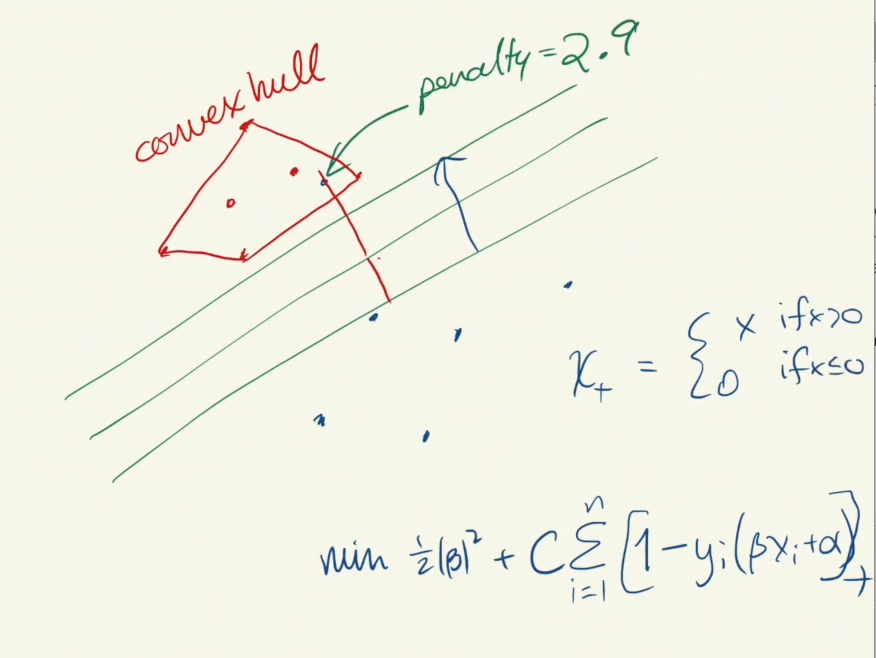 convex hull
penalty = 2.9
x₊ = { x if x>0
0 if x≤0
min ½|β|² + C Σⁿᵢ₌₁ [1 - yᵢ(βxᵢ+α)]₊